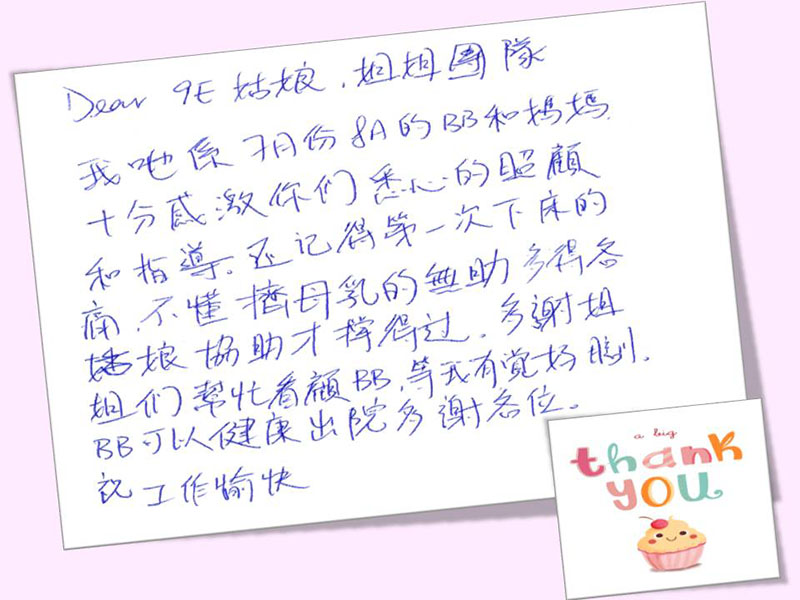 Dear 9E 姑娘，姐姐團隊
我哋係7月份8A的BB和媽媽
十分感激你们悉心的照顧
和指導.还记得第一次下床的
痛,不懂擠母乳的無助多得各
姑娘協助才撑得过.多謝姐
姐们幫忙看顧BB,等我有觉好瞓.
BB可以健康出院多謝各位。
祝工作愉快
a big
thank
you